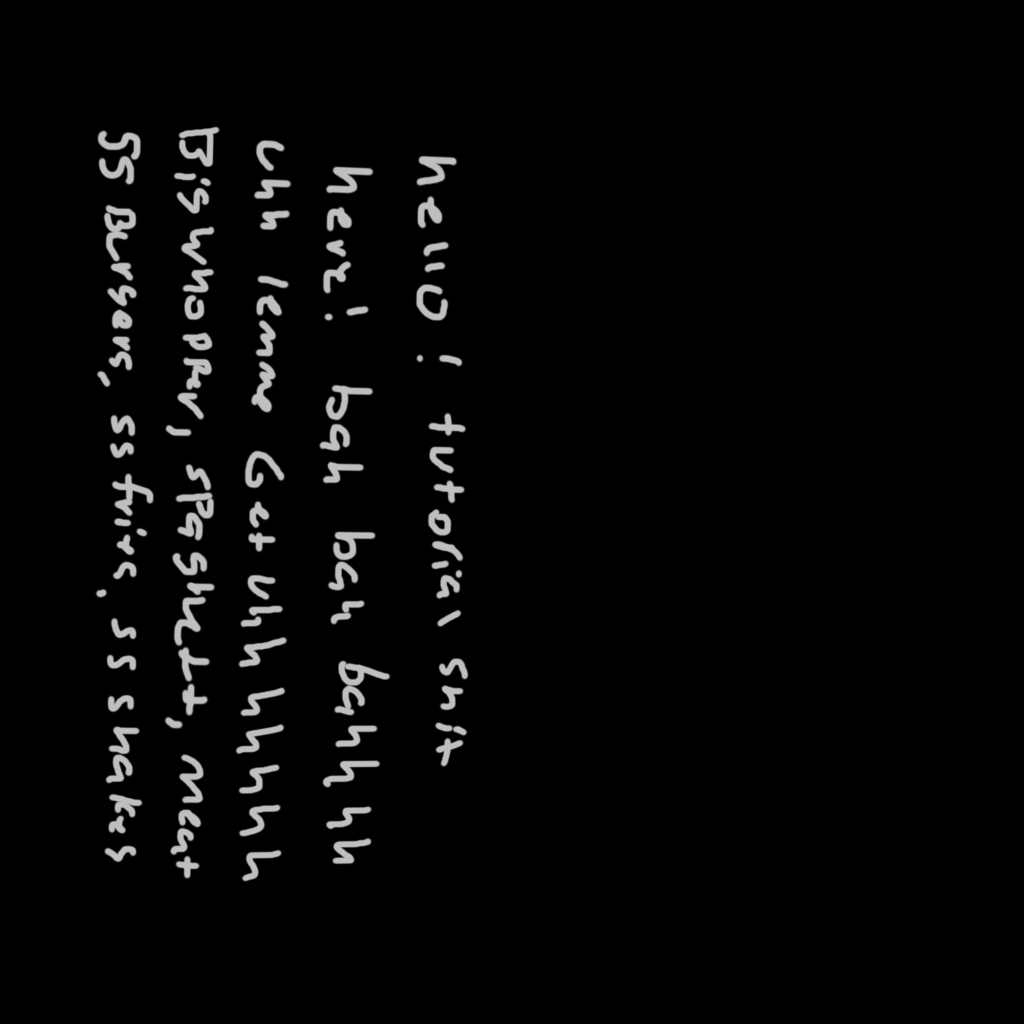 hello! tutorial shit
here! bah bah bahhhhh
uhh lemme Get uhhhhhhhh
Big whopper, spaghett, meat
55 Burgers, 55 fries. 55 shakes